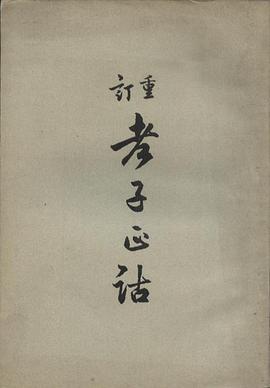 重訂
老子正詁